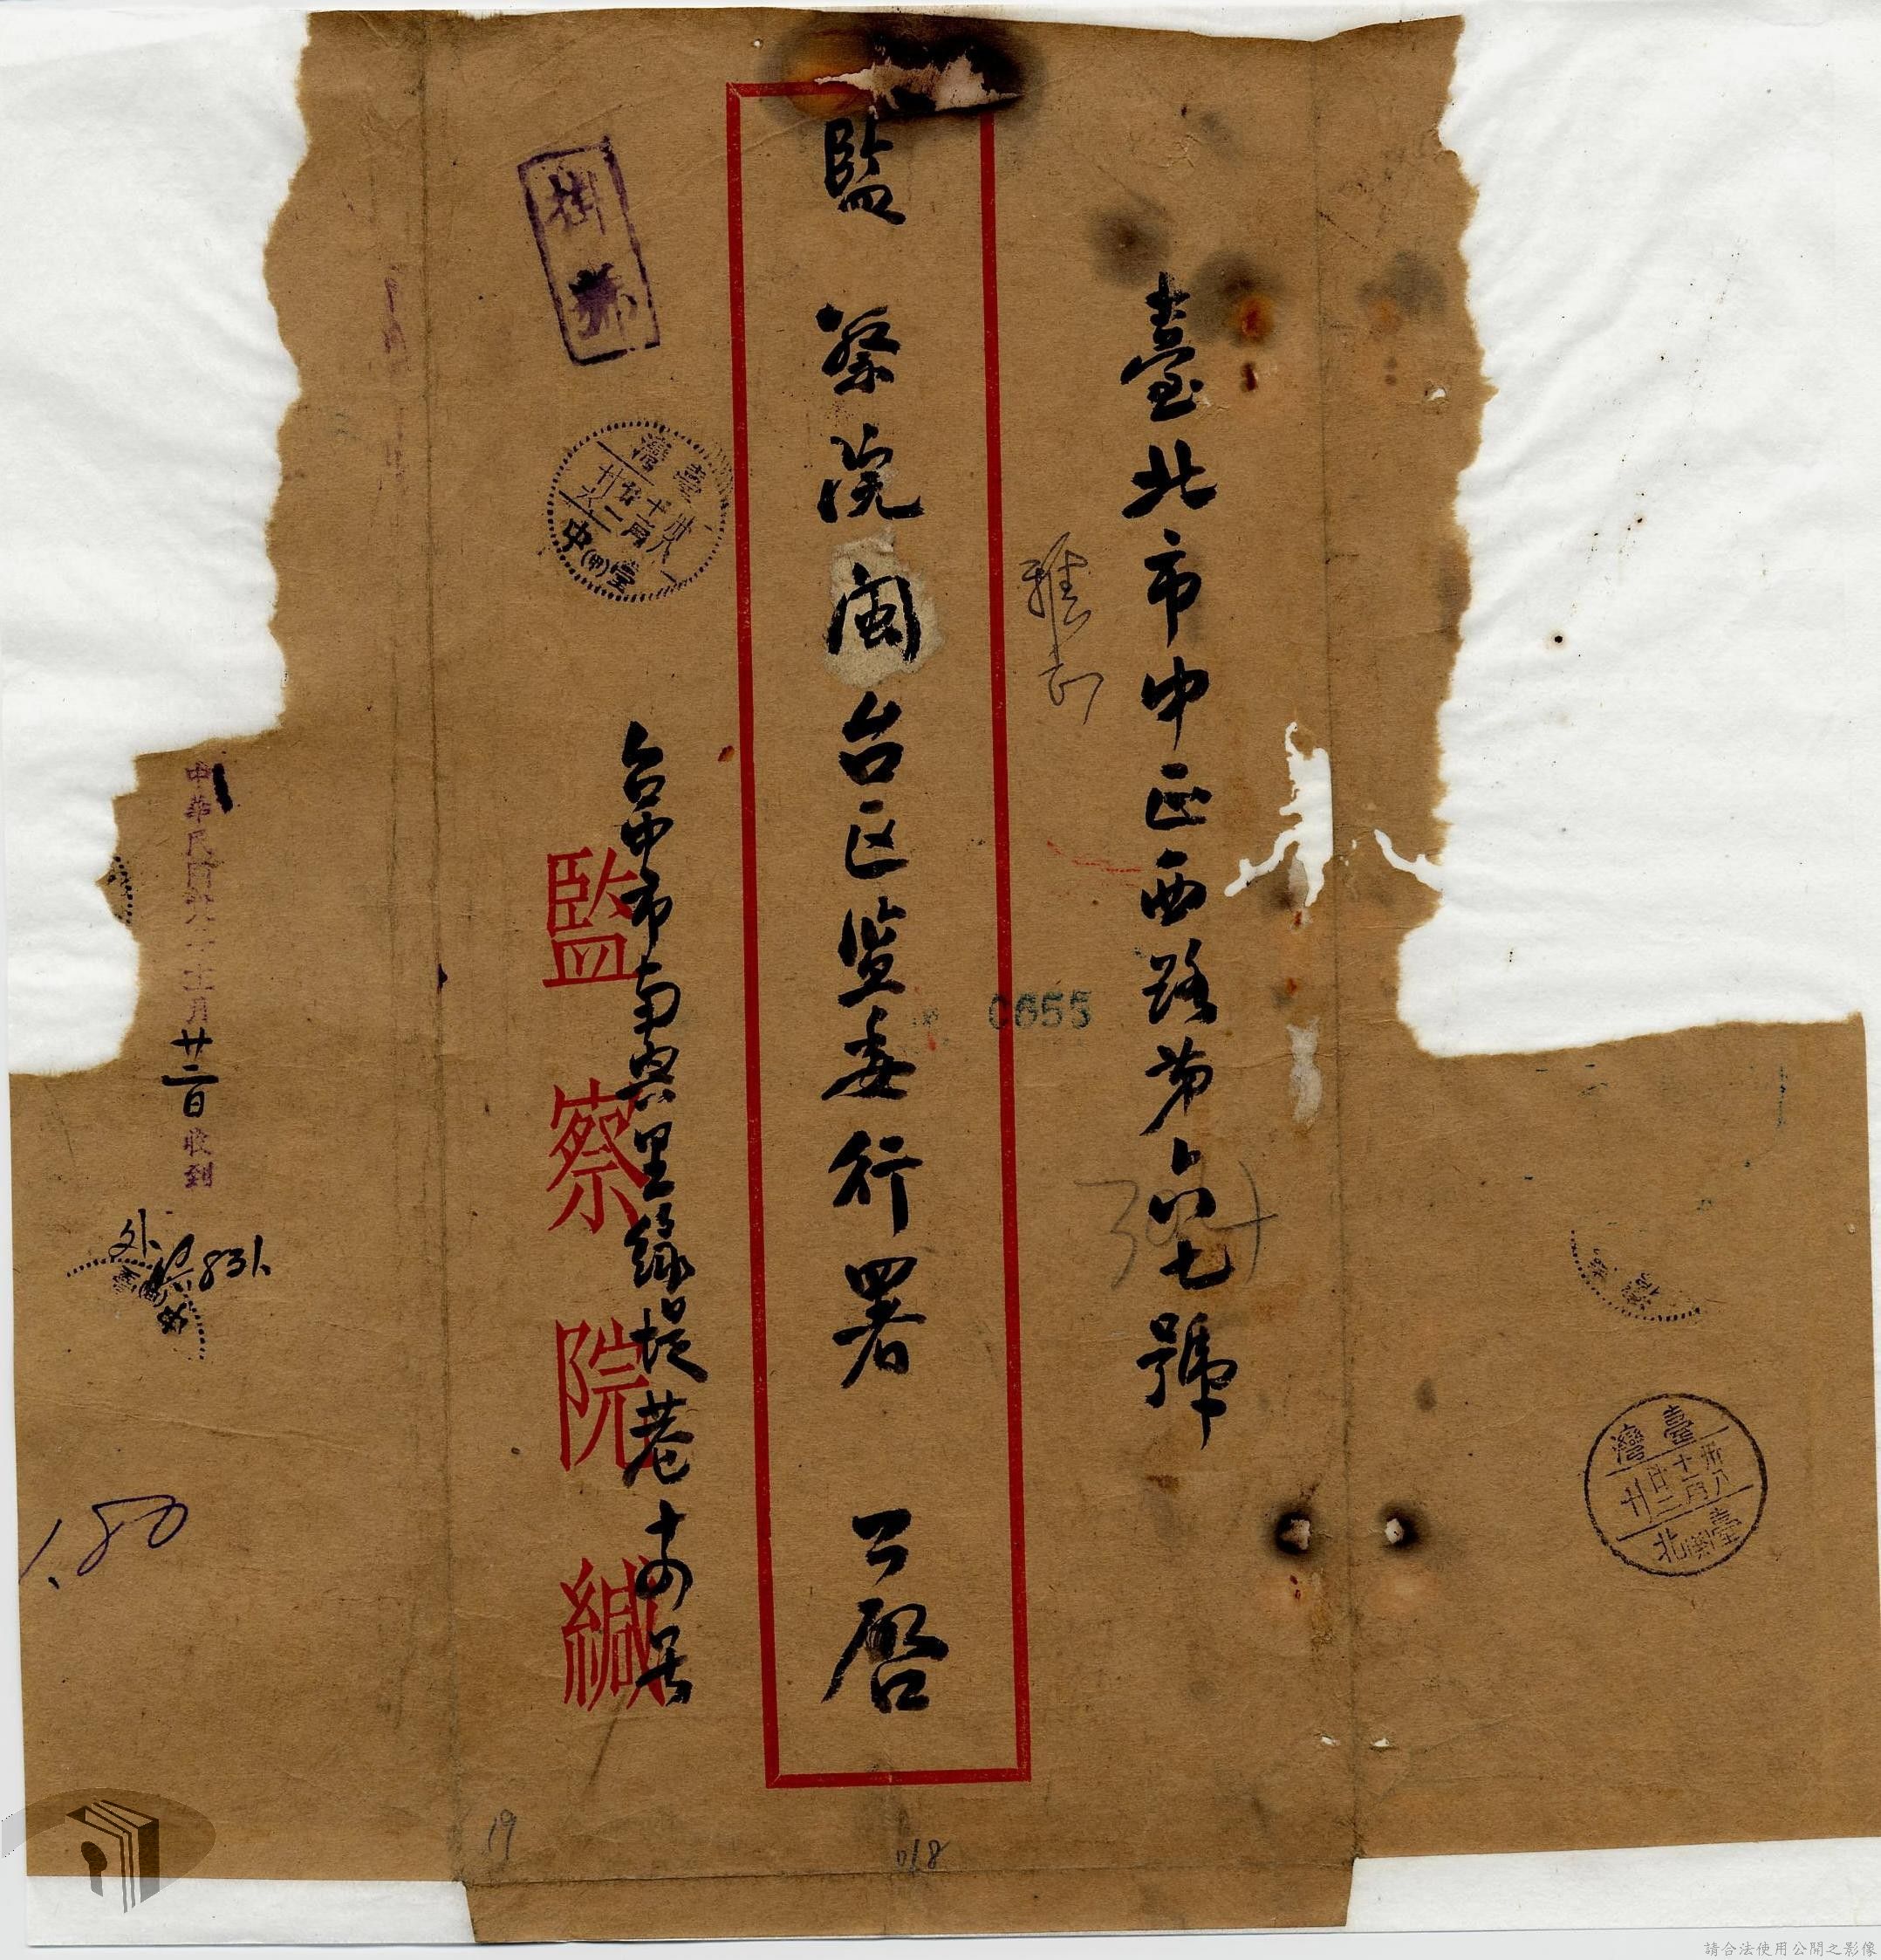 臺北市中正西路第六七號
0655
監察院閩台区监委行署 公啓
台中市南興里綠堤巷十四号
監察院緘
掛號
臺灣
卅八
十一月
廿六
臺中
(甲)
中華民國卅八年十一月廿二日收到
外 831
1.80
臺灣
卅八
十一月
廿二
臺北
19
018
請合法使用公開之影像